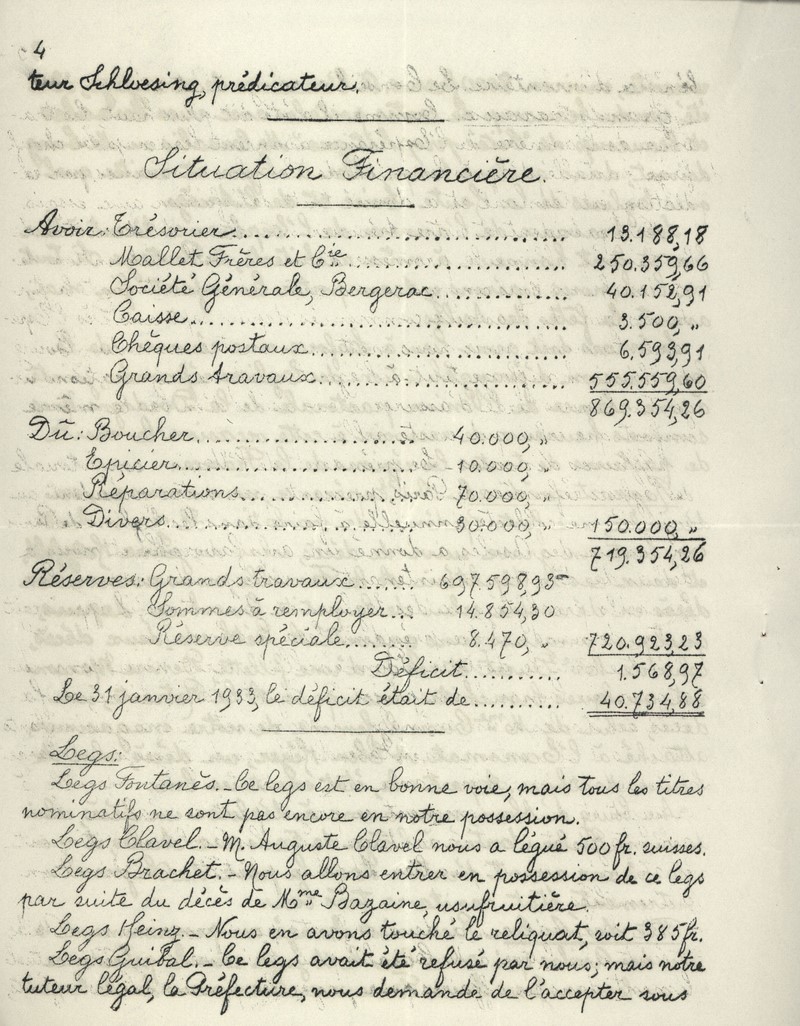 4
teur Schloesing, prédicateur.
Situation Financière.
Avoir: Trésorier........ 13.188,18
Mallet Frères et Cie........ 250.359,66
Société Générale, Bergerac........ 40.152,91
Caisse........ 3.500, "
Chèques postaux........ 6.593,91
Grands travaux........ 555.559,60
869.354,26
Dû: Boucher........ 40.000, "
Epicier........ 10.000, "
Réparations........ 70.000, "
Divers........ 30.000, " 150.000, "
719.354,26
Réserves: Grands travaux....... 697.598,93
Sommes à remployer... 14.854,30
Réserve spéciale........ 8.470, " 720.923,23
Déficit.......... 1.568,97
Le 31 janvier 1933, le déficit était de.......... 40.734,88
Legs:
Legs Fontanès. _ Ce legs est en bonne voie, mais tous les titres
nominatifs ne sont pas encore en notre possession.
Legs Clavel. _ M. Auguste Clavel nous a légué 500 fr. suisses.
Legs Brachet. _ Nous allons entrer en possession de ce legs
par suite du décès de Mme Bazaine, usufruitière.
Legs Heinz. _ Nous en avons touché le reliquat, soit 385 fr.
Legs Guibal. _ Ce legs avait été refusé par nous; mais notre
tuteur légal, la Préfecture, nous demande de l'accepter sous